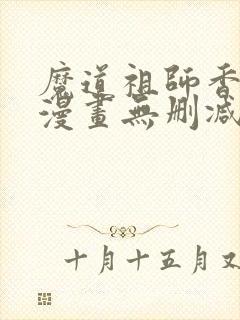 魔道祖師香
漫畫無刪減
十月十五月又